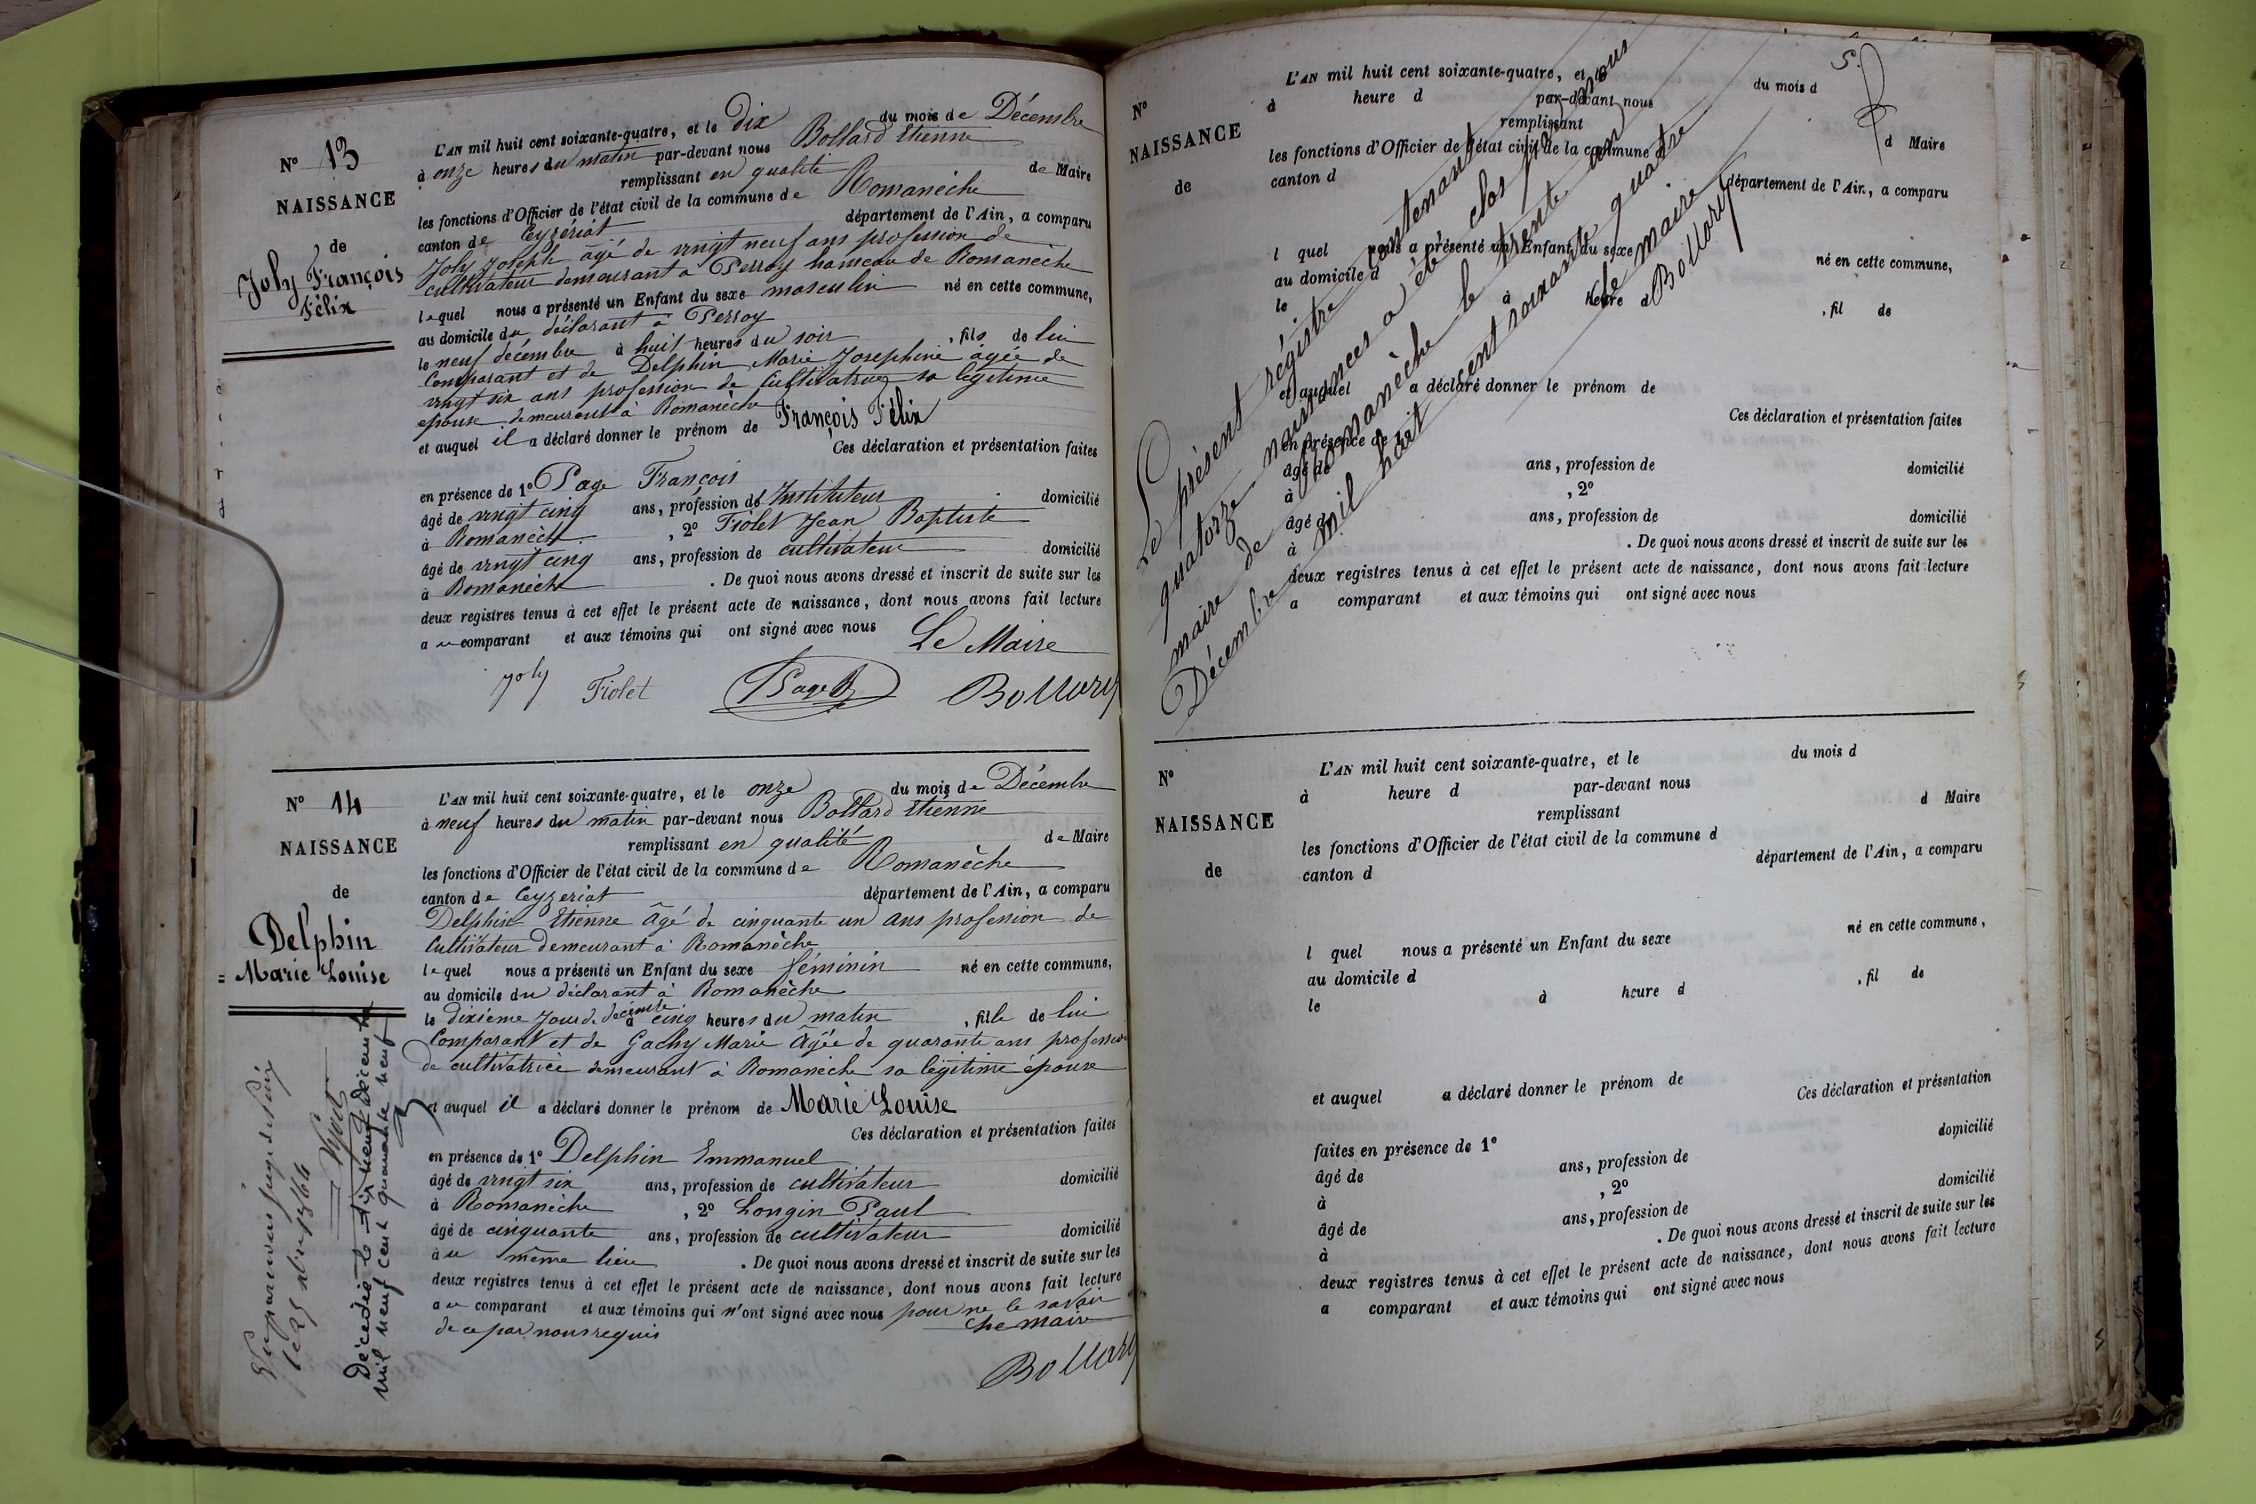 N° 13
NAISSANCE
de
Joly François
Félix
L'AN mil huit cent soixante-quatre, et le dix du mois de Décembre
à onze heures du matin par-devant nous Bollard Etienne
remplissant en qualité de Maire
les fonctions d'Officier de l'état civil de la commune de Romanèche
canton de Ceyzériat département de l'Ain, a comparu
Joly Joseph âgé de vingt neuf ans profession de
cultivateur demeurant à Perroy hameau de Romanèche
lequel nous a présenté un Enfant du sexe masculin né en cette commune,
au domicile du déclarant à Perroy
le neuf décembre à huit heures du soir , fils de lui
Comparant et de Delphin Marie Josephine âgée de
vingt six ans profession de Cultivatrice sa légitime
épouse demeurant à Romanèche
et auquel il a déclaré donner le prénom de François Félix
Ces déclaration et présentation faites
en présence de 1° Page François
âgé de vingt cinq ans, profession de Instituteur domicilié
à Romanèche , 2° Fiolet Jean Baptiste
âgé de vingt cinq ans, profession de cultivateur domicilié
à Romanèche . De quoi nous avons dressé et inscrit de suite sur les
deux registres tenus à cet effet le présent acte de naissance, dont nous avons fait lecture
au comparant et aux témoins qui ont signé avec nous
Le Maire
Joly Fiolet Page Bollard
N° 14
NAISSANCE
de
Delphin
Marie Louise
L'AN mil huit cent soixante-quatre, et le onze du mois de Décembre
à neuf heures du matin par-devant nous Bollard Etienne
remplissant en qualité de Maire
les fonctions d'Officier de l'état civil de la commune de Romanèche
canton de Ceyzeriat département de l'Ain, a comparu
Delphin Etienne âgé de cinquante un ans profession de
Cultivateur Demeurant à Romanèche
lequel nous a présenté un Enfant du sexe féminin né en cette commune,
au domicile du déclarant à Romanèche
le dixième Jour de décembre à cinq heures du matin , fille de lui
Comparant et de Gachy Marie âgée de quarante ans profession
de cultivatrice demeurant à Romanèche sa légitime épouse
et auquel il a déclaré donner le prénom de Marie Louise
Ces déclaration et présentation faites
en présence de 1° Delphin Emmanuel
âgé de vingt six ans, profession de cultivateur domicilié
à Romanèche , 2° Longin Paul
âgé de cinquante ans, profession de cultivateur domicilié
au même lieu . De quoi nous avons dressé et inscrit de suite sur les
deux registres tenus à cet effet le présent acte de naissance, dont nous avons fait lecture
au comparant et aux témoins qui n'ont signé avec nous pour ne le savoir
de ce par nous requis
Le maire
Bollard
Vu par nous juge de Paix
1864
Décédée le dix neuf Décembre
mil neuf cent quarante neuf
5
N°
NAISSANCE
de
L'AN mil huit cent soixante-quatre, et le du mois d
à heure d par-devant nous
remplissant d Maire
les fonctions d'Officier de l'état civil de la commune d
canton d département de l'Ain, a comparu
l quel nous a présenté un Enfant du sexe né en cette commune,
au domicile d
le à heure d , fil de
et auquel a déclaré donner le prénom de
Ces déclaration et présentation faites
en présence de 1°
âgé de ans, profession de domicilié
à , 2°
âgé d ans, profession de domicilié
à . De quoi nous avons dressé et inscrit de suite sur les
deux registres tenus à cet effet le présent acte de naissance, dont nous avons fait lecture
a comparant et aux témoins qui ont signé avec nous
Le présent régistre contenant
quatorze naissances a été clos par nous
maire de Romanèche le trente un
Décembre mil huit cent soixante quatre
Le maire
Bollard
N°
NAISSANCE
de
L'AN mil huit cent soixante-quatre, et le du mois d
à heure d par-devant nous
remplissant d Maire
les fonctions d'Officier de l'état civil de la commune d
canton d département de l'Ain, a comparu
l quel nous a présenté un Enfant du sexe né en cette commune,
au domicile d
le à heure d , fil de
et auquel a déclaré donner le prénom de
Ces déclaration et présentation
faites en présence de 1°
âgé de ans, profession de domicilié
à , 2°
âgé de ans, profession de domicilié
à . De quoi nous avons dressé et inscrit de suite sur les
deux registres tenus à cet effet le présent acte de naissance, dont nous avons fait lecture
a comparant et aux témoins qui ont signé avec nous